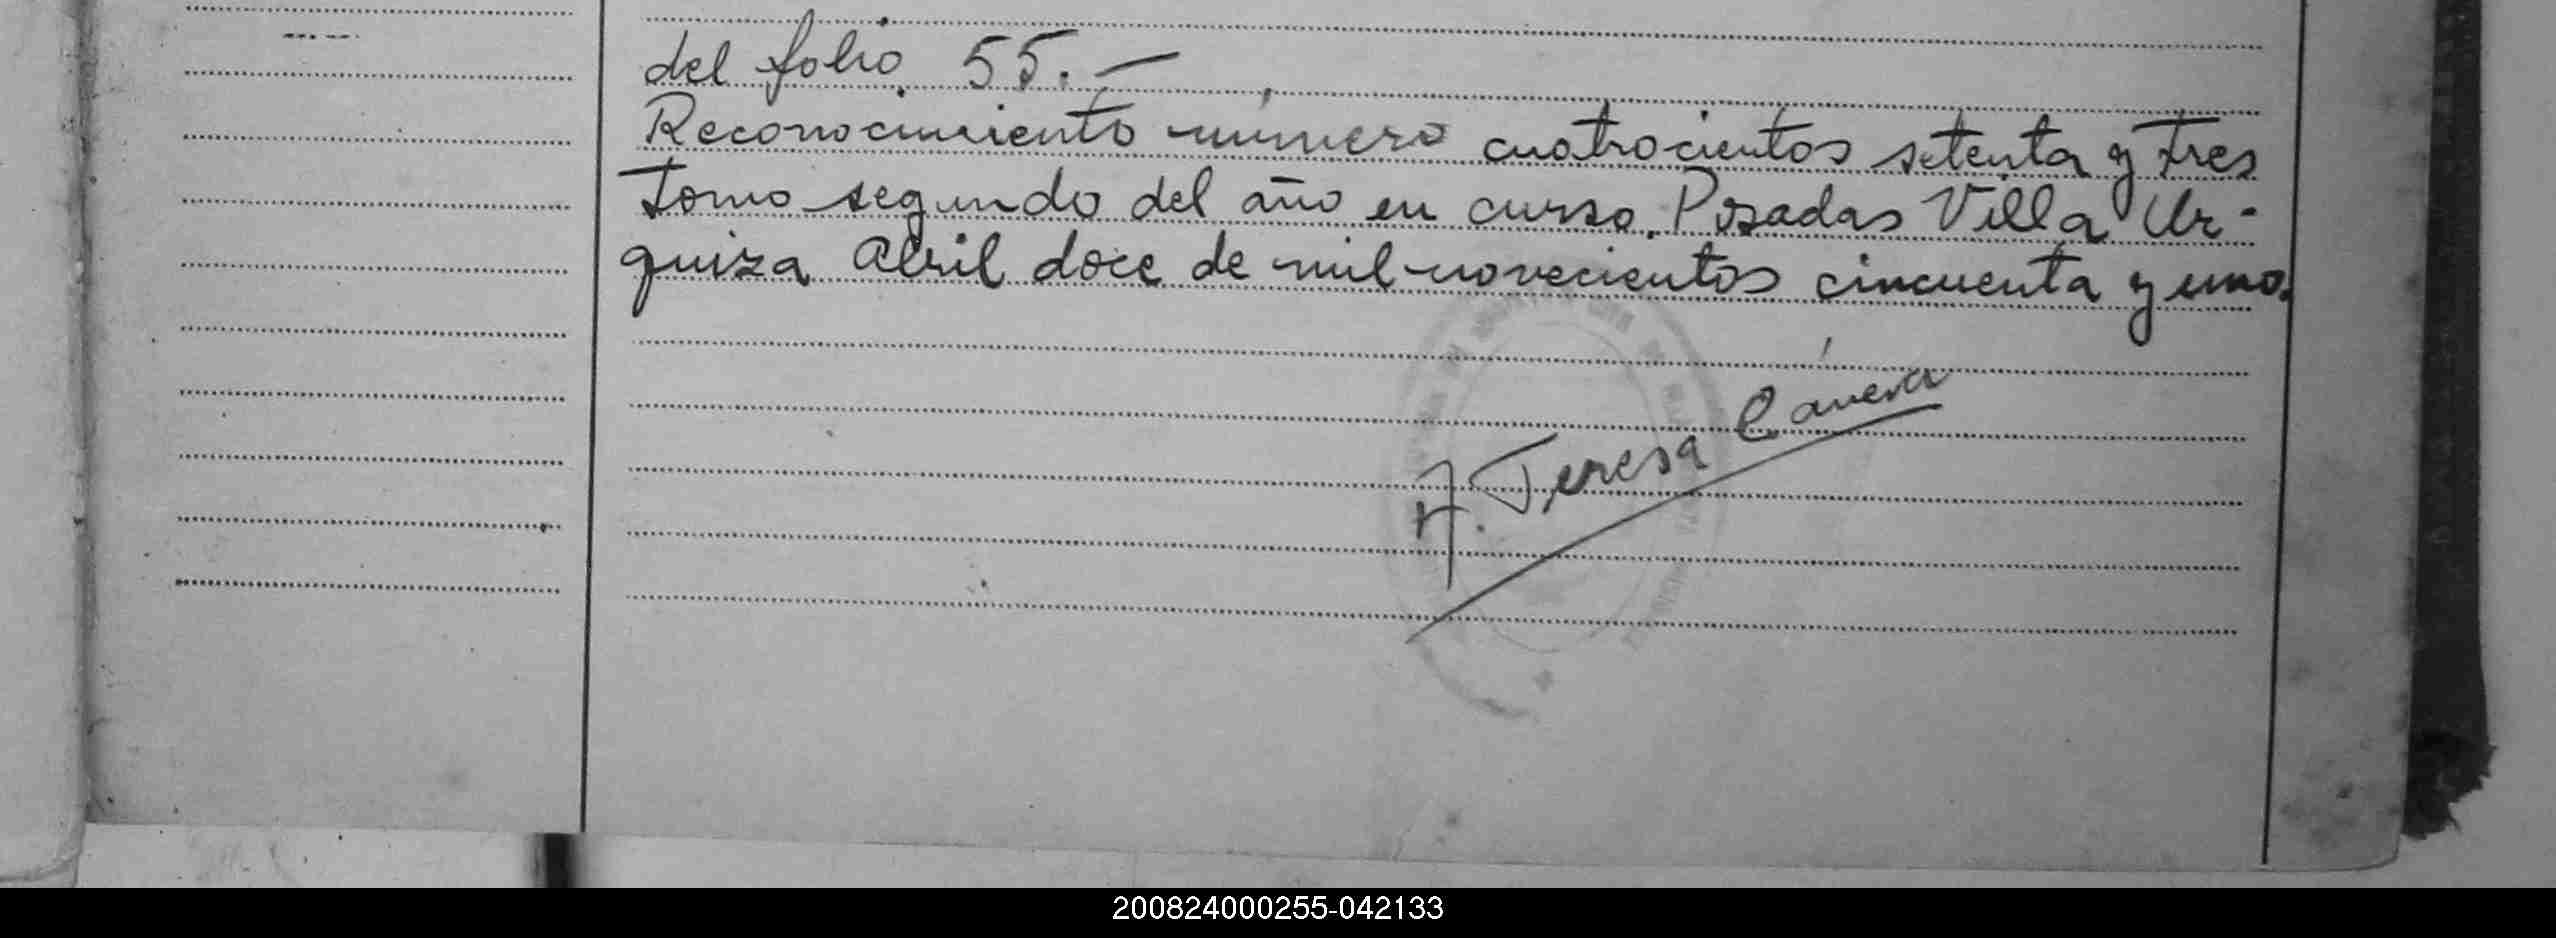 del folio 55.—
Reconocimiento número cuatrocientos setenta y tres
tomo segundo del año en curso. Posadas Villa Ur-
quiza Abril doce de mil novecientos cincuenta y uno.
A. Teresa
200824000255-042133